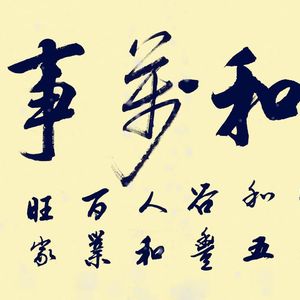 和萬事
和五
谷豐
人和
百業
旺家